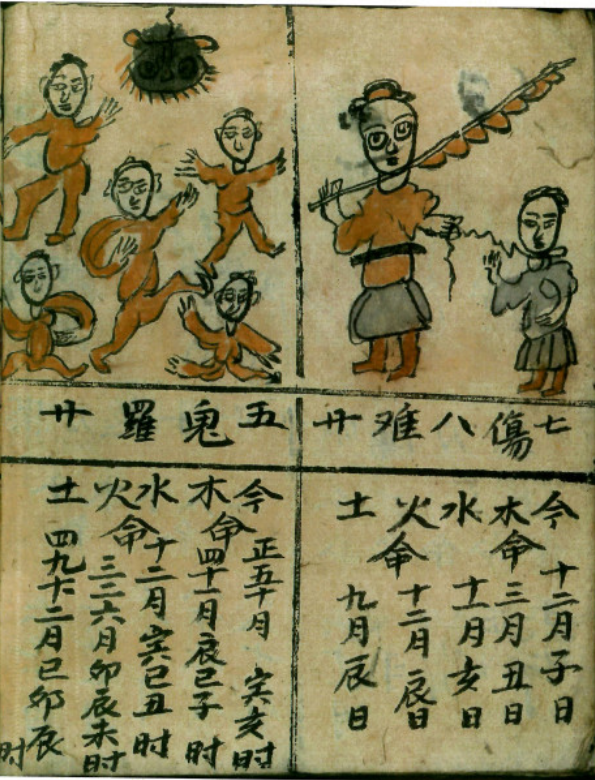 七傷八难廿
今 十二月子日
木命 三月丑日
水 十一月亥日
火命 十二月辰日
土 九月辰日
五鬼羅廿
今 正五十月 寅亥时
木命 四十一月辰巳子时
水 十二月寅巳丑时
火命 三二六月卯辰未时
土 四九十二月巳卯辰时